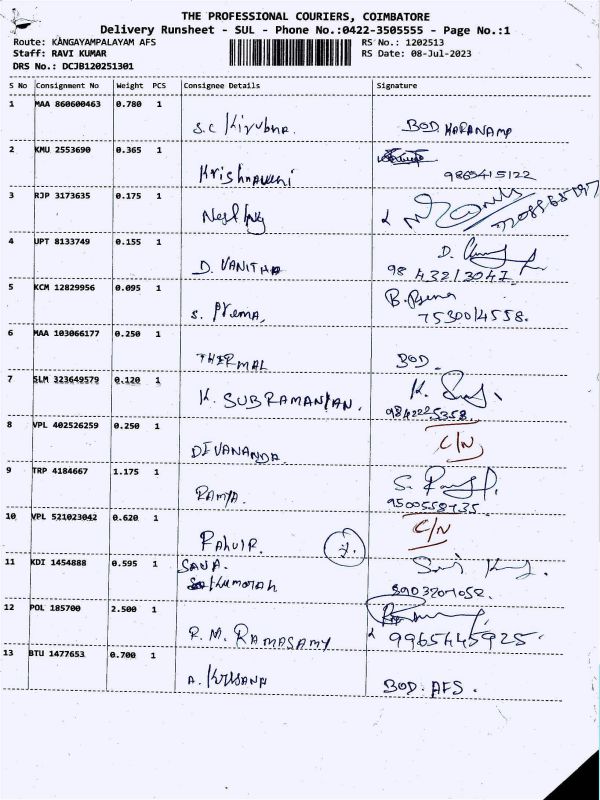 THE PROFESSIONAL COURIERS, COIMBATORE
Delivery Runsheet - SUL - Phone No.:0422-3505555 - Page No.:1
Route: KANGAYAMPALAYAM AFS RS No.: 1202513
Staff: RAVI KUMAR RS Date: 08-Jul-2023
DRS No.: DCJB120251301
S No Consignment No Weight PCS Consignee Details Signature
1 MAA 860600463 0.780 1
S.C Kirubha. BOD.
2 KMU 2553690 0.365 1
Krishnaveni 9865415122
3 RJP 3173635 0.175 1
4 UPT 8133749 0.155 1
D.
D. VANITHA 98 43213047
5 KCM 12829956 0.095 1
B. Prema
S. Prema, 7530014558.
6 MAA 103066177 0.250 1
THERMAL BOD
7 SLM 323649579 0.120 1
K.
K. SUBRAMANIAN. 9842225358.
8 VPL 402526259 0.250 1
C/N
DIVANANDA.
9 TRP 4184667 1.175 1
S.
RAMYA.
10 VPL 521023042 0.620 1
C/N
11 KDI 1454888 0.595 1
SANA.
12 POL 185700 2.500 1
R.M. RAMASAMY 9965445925.
13 BTU 1477653 0.700 1
A. BOD. AFS.